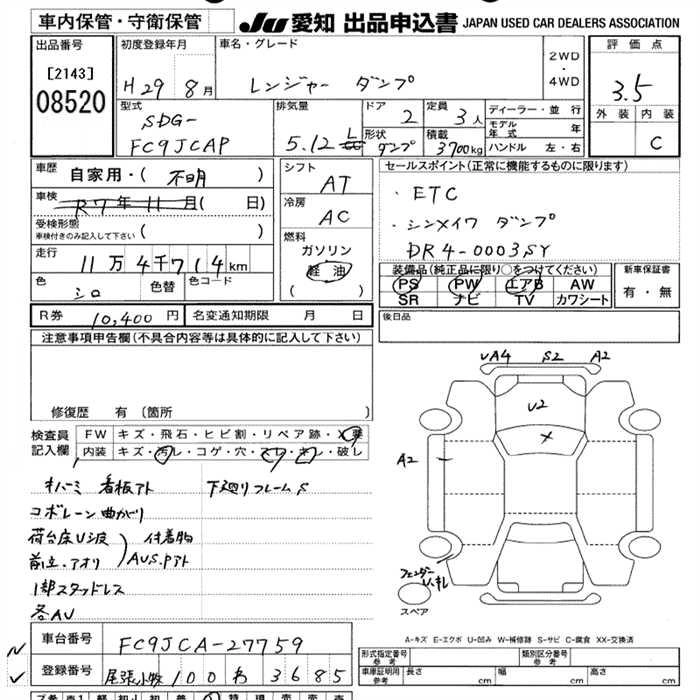 車内保管・守衛保管
JU 愛知 出品申込書 JAPAN USED CAR DEALERS ASSOCIATION
出品番号
[2143]
08520
初度登録年月
H29 8月
車名・グレード
レンジャー ダンプ
2WD
・
4WD
評価点
3.5
外装 内装
C
型式
SDG-
FC9JCAP
排気量
5.12 L
ドア
2
定員
3人
形状
ダンプ
積載
3700kg
ディーラー・並行
モデル年式 年
ハンドル 左・右
車歴
自家用・( 不明 )
車検
R7年11月( 日)
受検形態
車検付きのみ記入して下さい ( )
走行
11万4千714km
色
シロ
色替
色コード
シフト
AT
冷房
AC
燃料
ガソリン
軽油
( )
セールスポイント(正常に機能するものに限ります)
・ETC
・シンメイワ ダンプ
DR4-0003SY
装備品(純正品に限り○をつけてください)
PS PW エアB AW
SR ナビ TV カワシート
新車保証書
有・無
R券 10,400円
名変通知期限 月 日
後日品
注意事項申告欄(不具合内容等は具体的に記入して下さい)
修復歴 有(箇所 )
検査員
記入欄
FW キズ・飛石・ヒビ割・リペア跡・X要
内装 キズ・汚レ・コゲ・穴・スレ・キレ・破レ
オバーミ 看板アト 下廻リフレームS
コボレーン曲がり
荷台床U波
前立.アオリ
付着物
AUS.Pアト
1部スタッドレス
各AU
UA4 S2 A2
U2
X
A2
フェンダー
スペア
A-キズ E-エクボ U-凹み W-補修跡 S-サビ C-腐食 XX-交換済
車台番号 FC9JCA-27759
登録番号 尾張小牧 100 わ 3685
形式指定番号
参考
類別区分番号
参考
車車証明用
参考
長さ cm
幅 cm
高さ cm